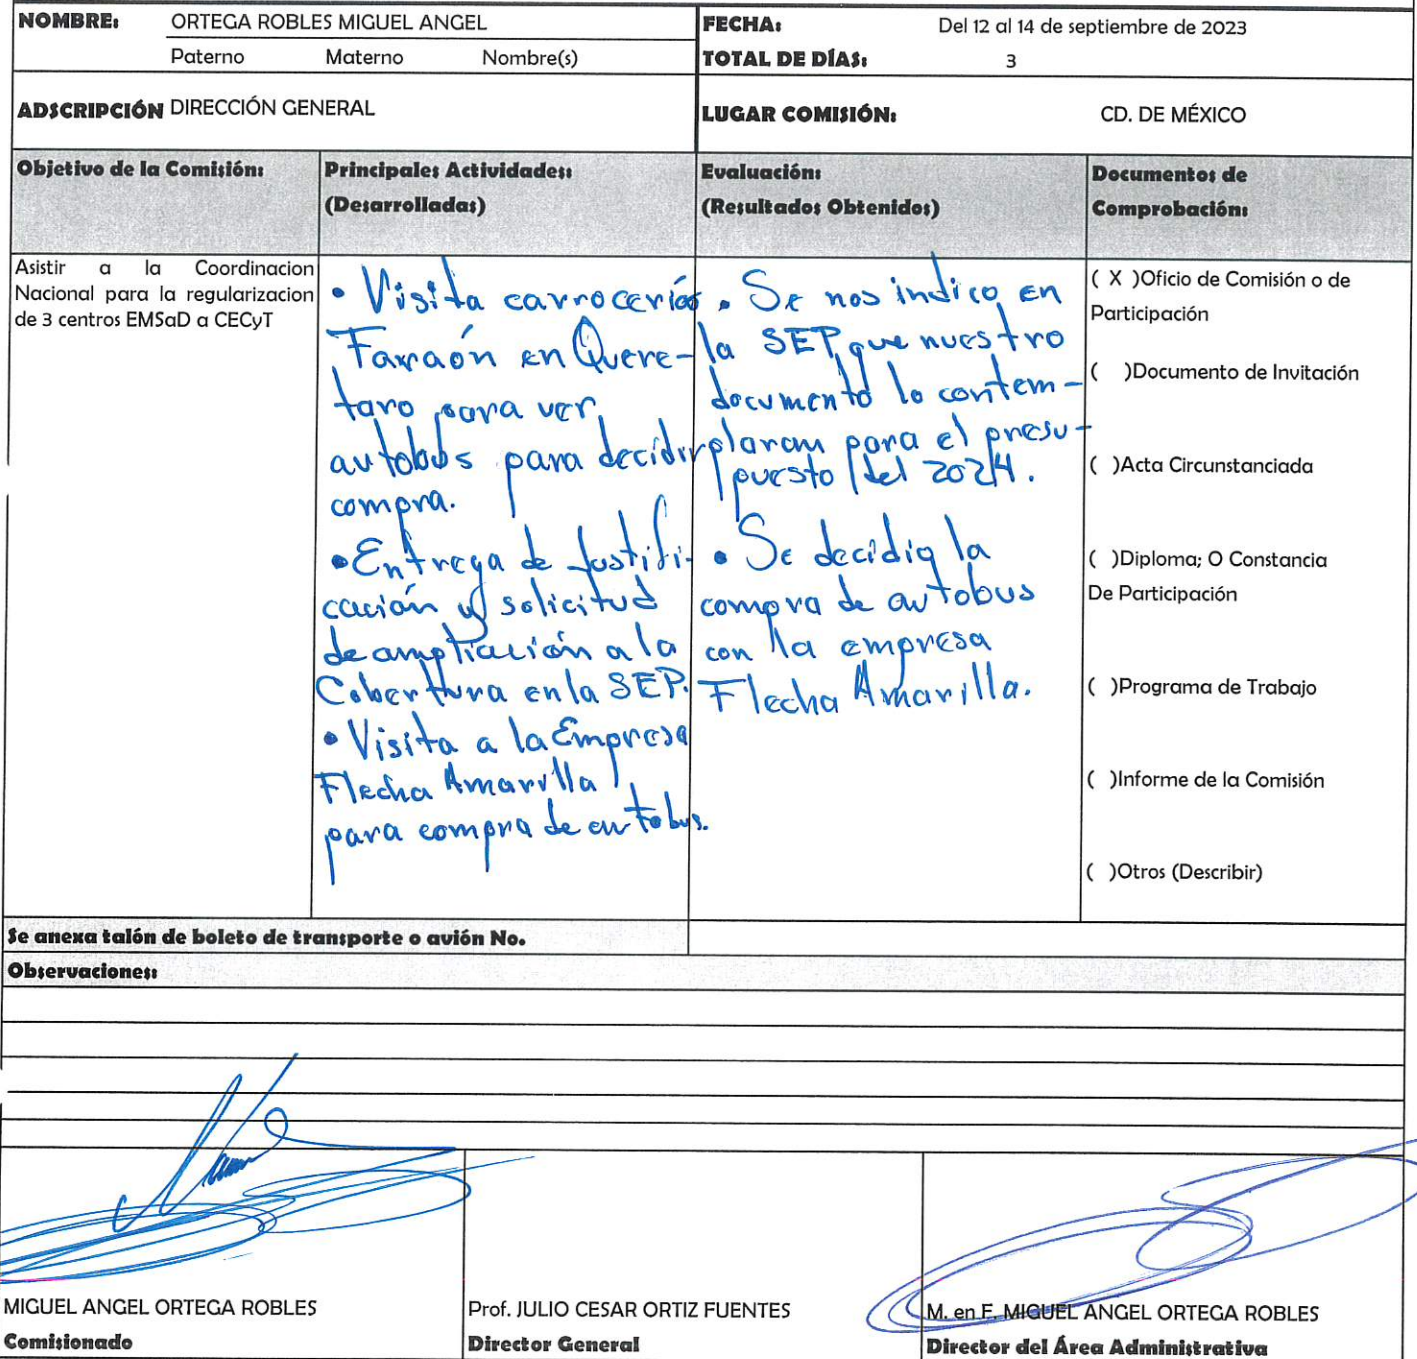 NOMBRE: ORTEGA ROBLES MIGUEL ANGEL
Paterno Materno Nombre(s)
FECHA: Del 12 al 14 de septiembre de 2023
TOTAL DE DÍAS: 3
ADSCRIPCIÓN DIRECCIÓN GENERAL
LUGAR COMISIÓN: CD. DE MÉXICO
Objetivo de la Comisión:
Principales Actividades:
(Desarrolladas)
Evaluación:
(Resultados Obtenidos)
Documentos de
Comprobación:
Asistir a la Coordinacion
Nacional para la regularizacion
de 3 centros EMSaD a CECyT
• Visita carrocerías
Faraón en Quere-
taro para ver
autobus para decidir
compra.
• Entrega de Justifi-
cación y solicitud
de ampliación a la
Cobertura en la SEP.
• Visita a la Empresa
Flecha Amarilla
para compra de autobus.
• Se nos indico en
la SEP, que nuestro
documento lo contem-
plaran para el presu-
puesto del 2024.
• Se decidio la
compra de autobus
con la empresa
Flecha Amarilla.
( X )Oficio de Comisión o de
Participación
( )Documento de Invitación
( )Acta Circunstanciada
( )Diploma; O Constancia
De Participación
( )Programa de Trabajo
( )Informe de la Comisión
( )Otros (Describir)
Se anexa talón de boleto de transporte o avión No.
Observaciones:
MIGUEL ANGEL ORTEGA ROBLES
Comisionado
Prof. JULIO CESAR ORTIZ FUENTES
Director General
M. en F. MIGUEL ANGEL ORTEGA ROBLES
Director del Área Administrativa